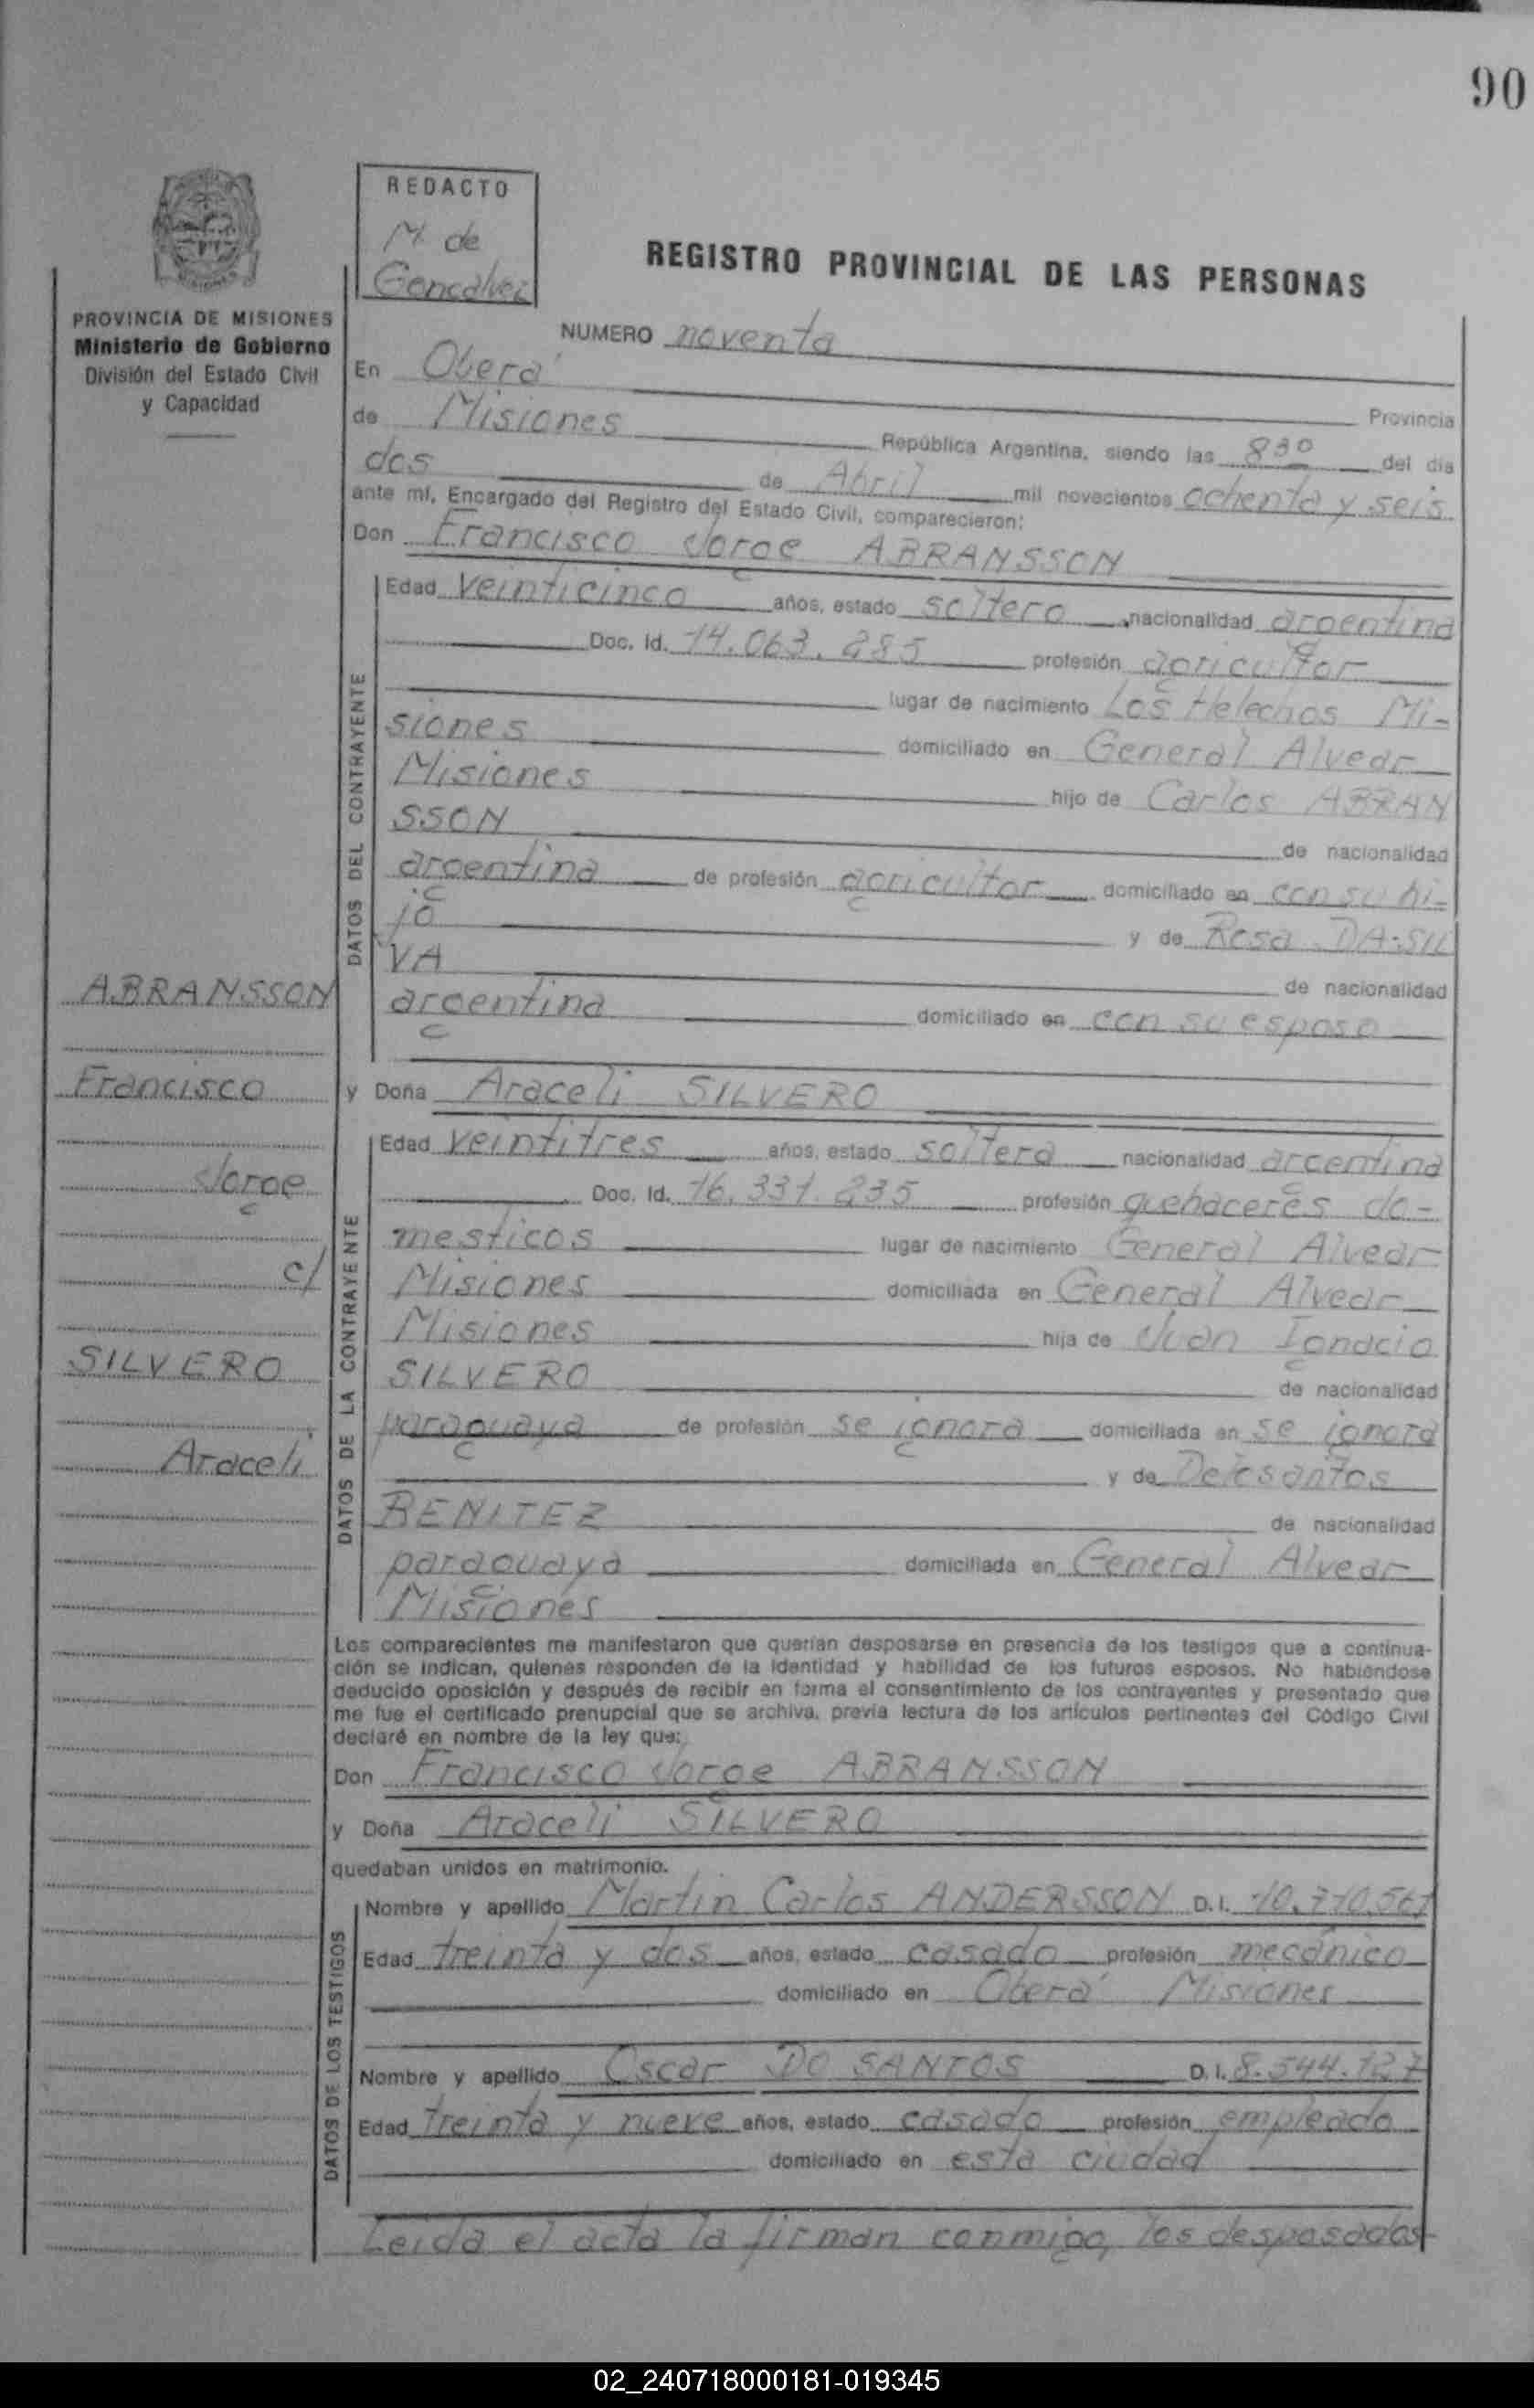 90
REDACTO
M. de
Goncalvez
REGISTRO PROVINCIAL DE LAS PERSONAS
PROVINCIA DE MISIONES
Ministerio de Gobierno
División del Estado Civil
y Capacidad
NUMERO noventa
En Oberá Provincia
de Misiones República Argentina, siendo las 8 30 del día
dos de Abril mil novecientos ochenta y seis
ante mí, Encargado del Registro del Estado Civil, comparecieron:
Don Francisco Jorge ABRANSSON
DATOS DEL CONTRAYENTE
Edad veinticinco años, estado soltero nacionalidad argentina
Doc. Id. 14.063.285 profesión agricultor
lugar de nacimiento Los Helechos Mi-
siones domiciliado en General Alvear
Misiones hijo de Carlos ABRAN
SSON de nacionalidad
argentina de profesión agricultor domiciliado en con su hi-
jo y de Rosa DA-SIL
VA de nacionalidad
argentina domiciliado en con su esposo
ABRANSSON
Francisco
Jorge
c/
SILVERO
Araceli
y Doña Araceli SILVERO
DATOS DE LA CONTRAYENTE
Edad veintitres años, estado soltera nacionalidad argentina
Doc. Id. 16.331.235 profesión quehaceres do-
mesticos lugar de nacimiento General Alvear
Misiones domiciliada en General Alvear
Misiones hija de Juan Ignacio
SILVERO de nacionalidad
paraguaya de profesión se ignora domiciliada en se ignora
y de Delosantos
BENITEZ de nacionalidad
paraguaya domiciliada en General Alvear
Misiones
Los comparecientes me manifestaron que querían desposarse en presencia de los testigos que a continua-
ción se indican, quienes responden de la identidad y habilidad de los futuros esposos. No habiéndose
deducido oposición y después de recibir en forma el consentimiento de los contrayentes y presentado que
me fue el certificado prenupcial que se archiva, previa lectura de los artículos pertinentes del Código Civil
declaré en nombre de la ley que:
Don Francisco Jorge ABRANSSON
y Doña Araceli SILVERO
quedaban unidos en matrimonio.
DATOS DE LOS TESTIGOS
Nombre y apellido Martin Carlos ANDERSSON D.I. 10.770.561
Edad treinta y dos años, estado casado profesión mecánico
domiciliado en Oberá Misiones
Nombre y apellido Oscar DO SANTOS D.I. 8.544.127
Edad treinta y nueve años, estado casado profesión empleado
domiciliado en esta ciudad
Leida el acta la firman conmigo, los desposados
02_240718000181-019345